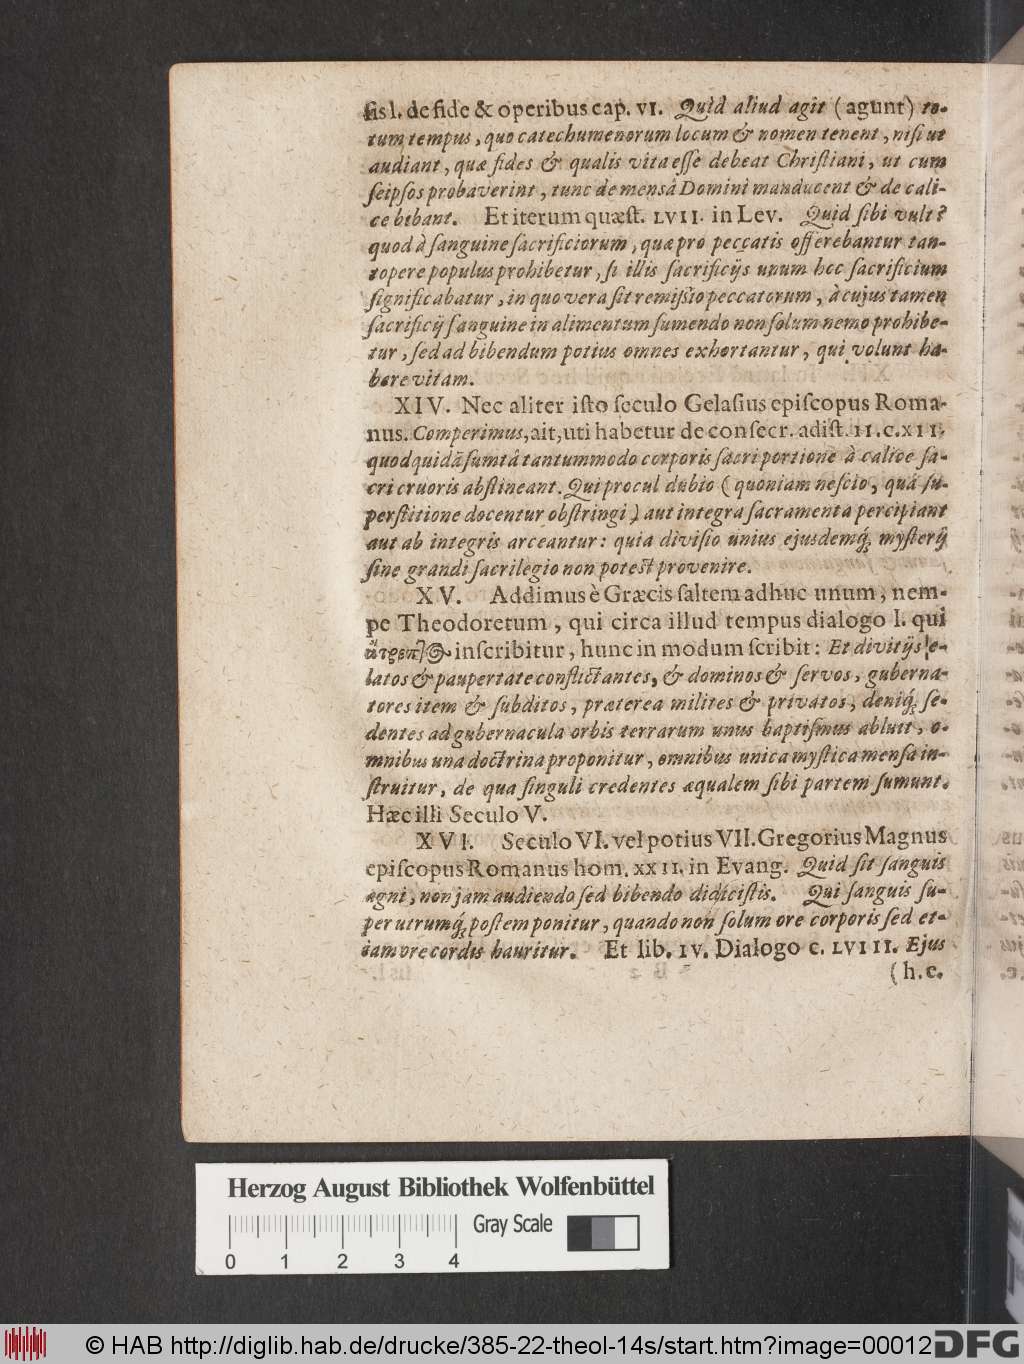 sis l. de fide & operibus cap. VI. Quid aliud agit (agunt) to-
tum tempus, quo catechumenorum locum & nomen tenent, nisi ut
audiant, quæ fides & qualis vita esse debeat Christiani, ut cum
seipsos probaverint, tunc de mensâ Domini manducent & de cali-
ce bibant. Et iterum quæst. LVII. in Lev. Quid sibi vult?
quod à sanguine sacrificiorum, quæ pro peccatis offerebantur tan-
topere populus prohibetur, si illis sacrificijs unum hoc sacrificium
significabatur, in quo vera sit remissio peccatorum, à cujus tamen
sacrificij sanguine in alimentum sumendo non solum nemo prohibe-
tur, sed ad bibendum potius omnes exhortantur, qui volunt ha-
bere vitam.
XIV. Nec aliter isto seculo Gelasius episcopus Roma-
nus. Comperimus, ait, uti habetur de consecr. adist. 11. c. XII.
quod quidã sumtâ tantummodo corporis sacri portione à calice sa-
cri cruoris abstineant. Qui procul dubio (quoniam nescio, quâ su-
perstitione docentur obstringi) aut integra sacramenta percipiant
aut ab integris arceantur: quia divisio unius ejusdemq́; mysterij
sine grandi sacrilegio non potest provenire.
XV. Addimus è Græcis saltem adhuc unum, nem-
pe Theodoretum, qui circa illud tempus dialogo l. qui
inscribitur, hunc in modum scribit: Et divitijs e-
latos & paupertate conflictantes, & dominos & servos, guberna-
tores item & subditos, præterea milites & privatos, deniq́; se-
dentes ad gubernacula orbis terrarum unus baptismus abluit, o-
mnibus una doctrina proponitur, omnibus unica mystica mensa in-
struitur, de qua singuli credentes æqualem sibi partem sumunt.
Hæc illi Seculo V.
XVI. Seculo VI. vel potius VII. Gregorius Magnus
episcopus Romanus hom. XXII. in Evang. Quid sit sanguis
agni, non jam audiendo sed bibendo didicistis. Qui sanguis su-
per utrumq́; postem ponitur, quando non solum ore corporis sed et-
iam ore cordis hauritur. Et lib. IV. Dialogo c. LVIII. Ejus
(h. c.
Herzog August Bibliothek Wolfenbüttel
Gray Scale
0 1 2 3 4
© HAB http://diglib.hab.de/drucke/385-22-theol-14s/start.htm?image=00012
DFG